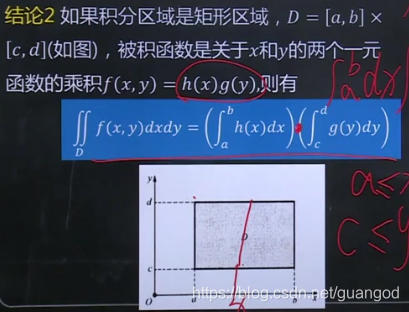 结论2 如果积分区域是矩形区域，D = [a, b] ×
[c, d](如图)，被积函数是关于x和y的两个一元
函数的乘积f(x, y) = h(x)g(y),则有
∬_D f(x, y)dxdy = (∫_a^b h(x)dx)·(∫_c^d g(y)dy)
∫_a^b dx
a≤x
c≤y
y
d
D
c
O
https://blog.csdn.net/guangod